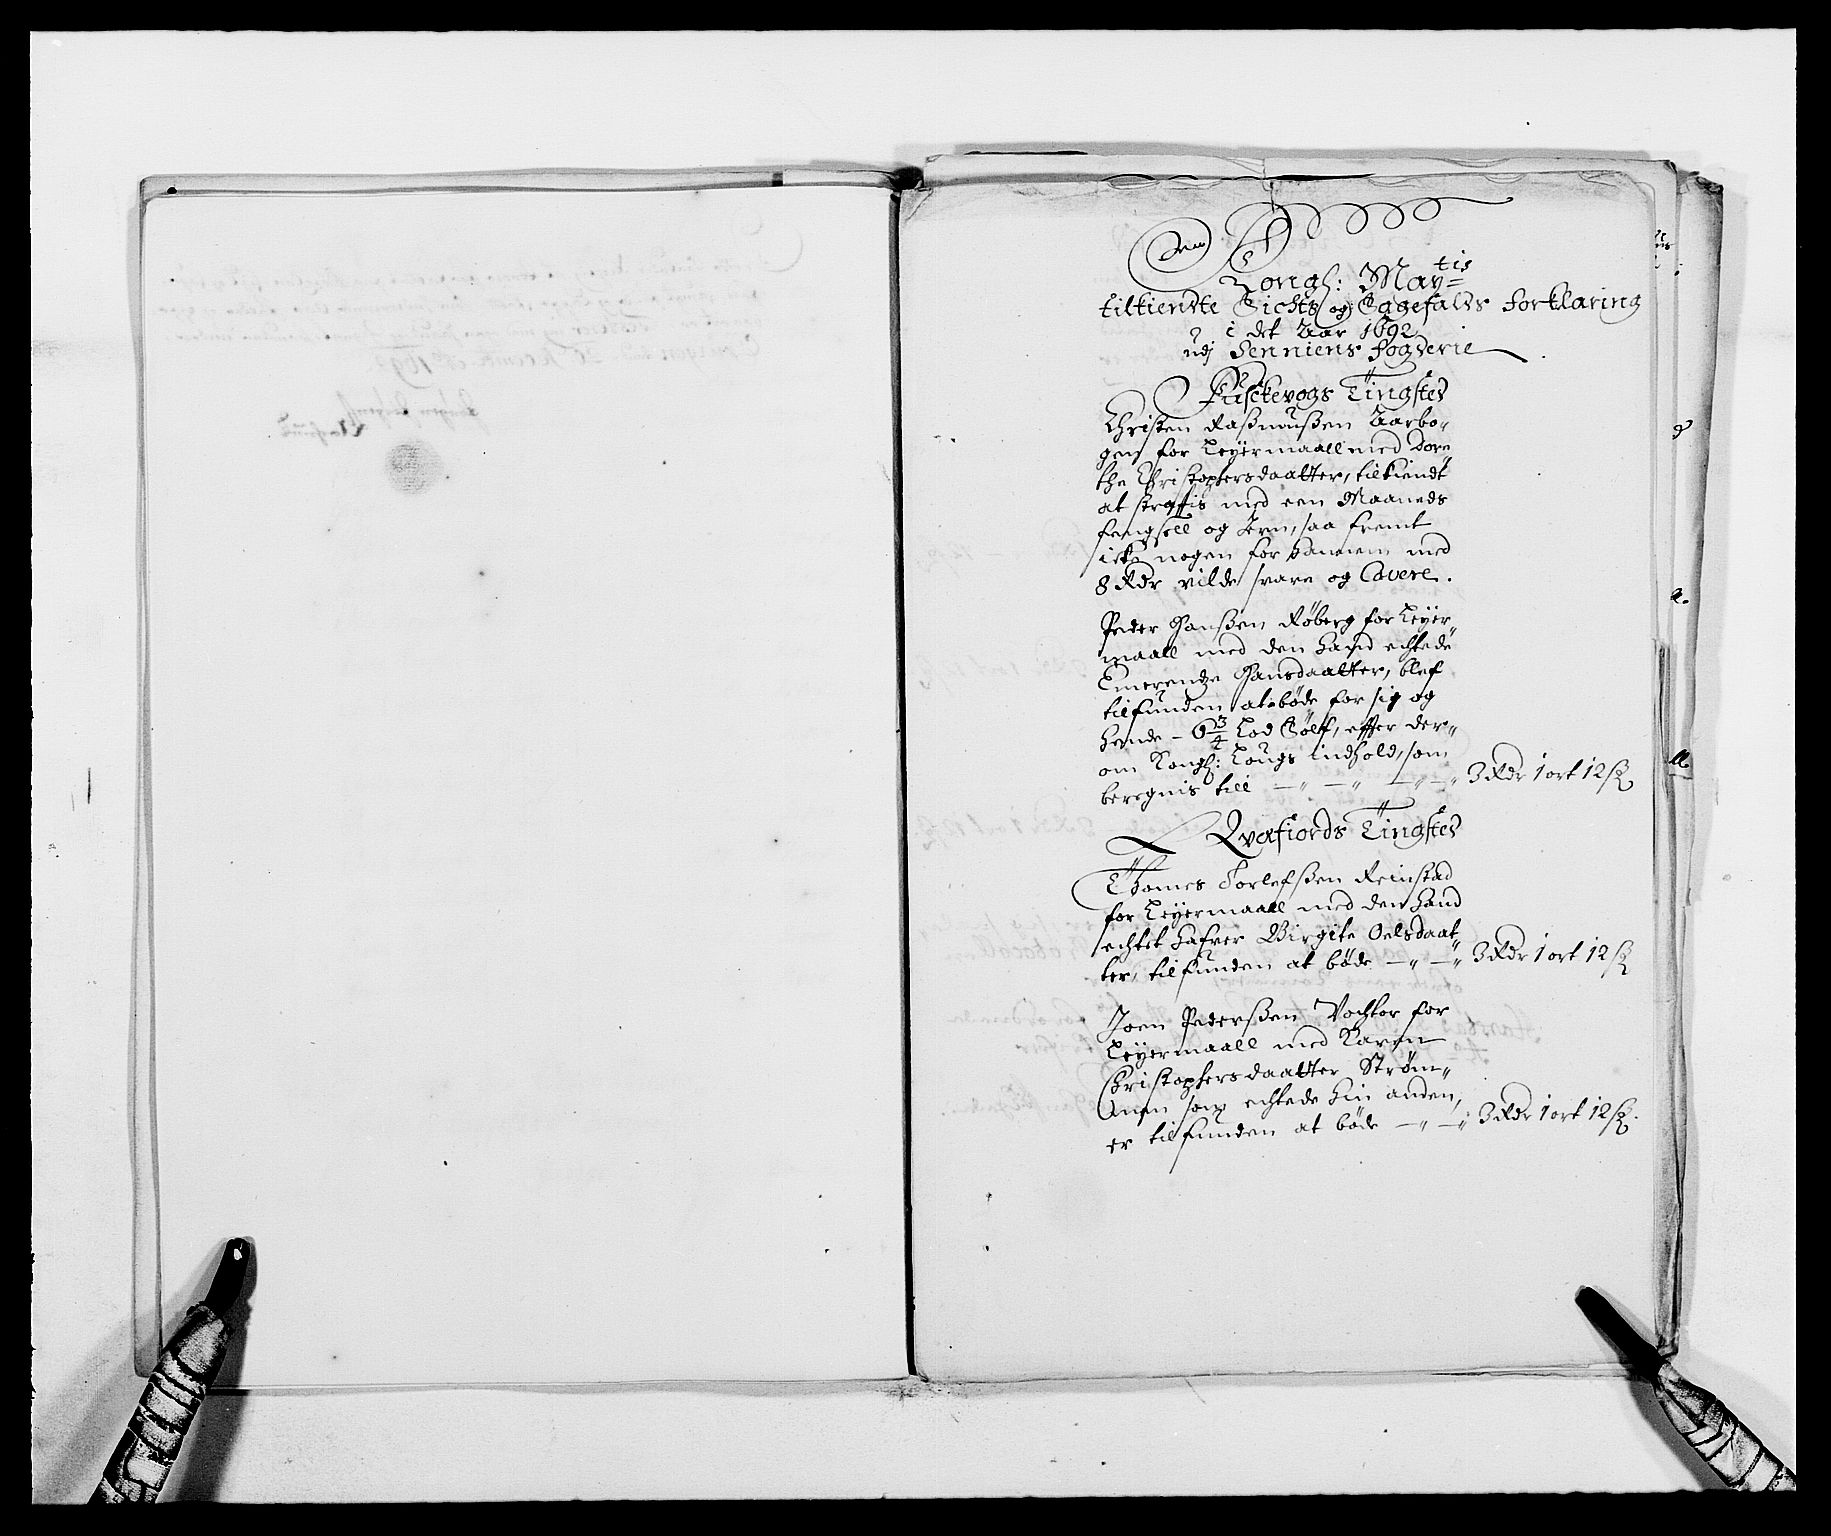 Den
Kongl: May=tis
tilkiendte Sichts og Saggefalds forklaring
i det Aar 1692
udj Senniens fogderie
Fusckevogs Tingsted
Christen Rasmussen Aarbo„
gen for Leyermaall med Dore„
the Christophersdaatter, tilkiendt
at straffis med een Maaneds
fengsell og Jern, saa fremt
icke nogen for hannem med
8 Rdr vilde svare og Cavere.
Peder Hanssen Røberg for Leyer„
maall med den hand echtede
Emerentze Hansdaatter, blef
tilfunden at bøde for sig og
hende - 6 3/4 Lod Sølf, effter der„
om Kongl: Lougs indhold, som
beregnis till — „ — „ — „ — „ 3 Rdr 1 ort 12 ß
Qvæfiords Tingsted
Thomes Torlefssen Reinstad
for Leyermaall med den hand
echtet hafver Birgite Oelsdaat„
ter, tilfunden at bøde — „ — „ 3 Rdr 1 ort 12 ß
Joen Pederssen Vochtor for
Leyermaall med Karen
Christophersdaatter Strøm„
men som echtede hin anden,
er tilfunden at bøde — „ — „ 3 Rdr 1 ort 12 ß.